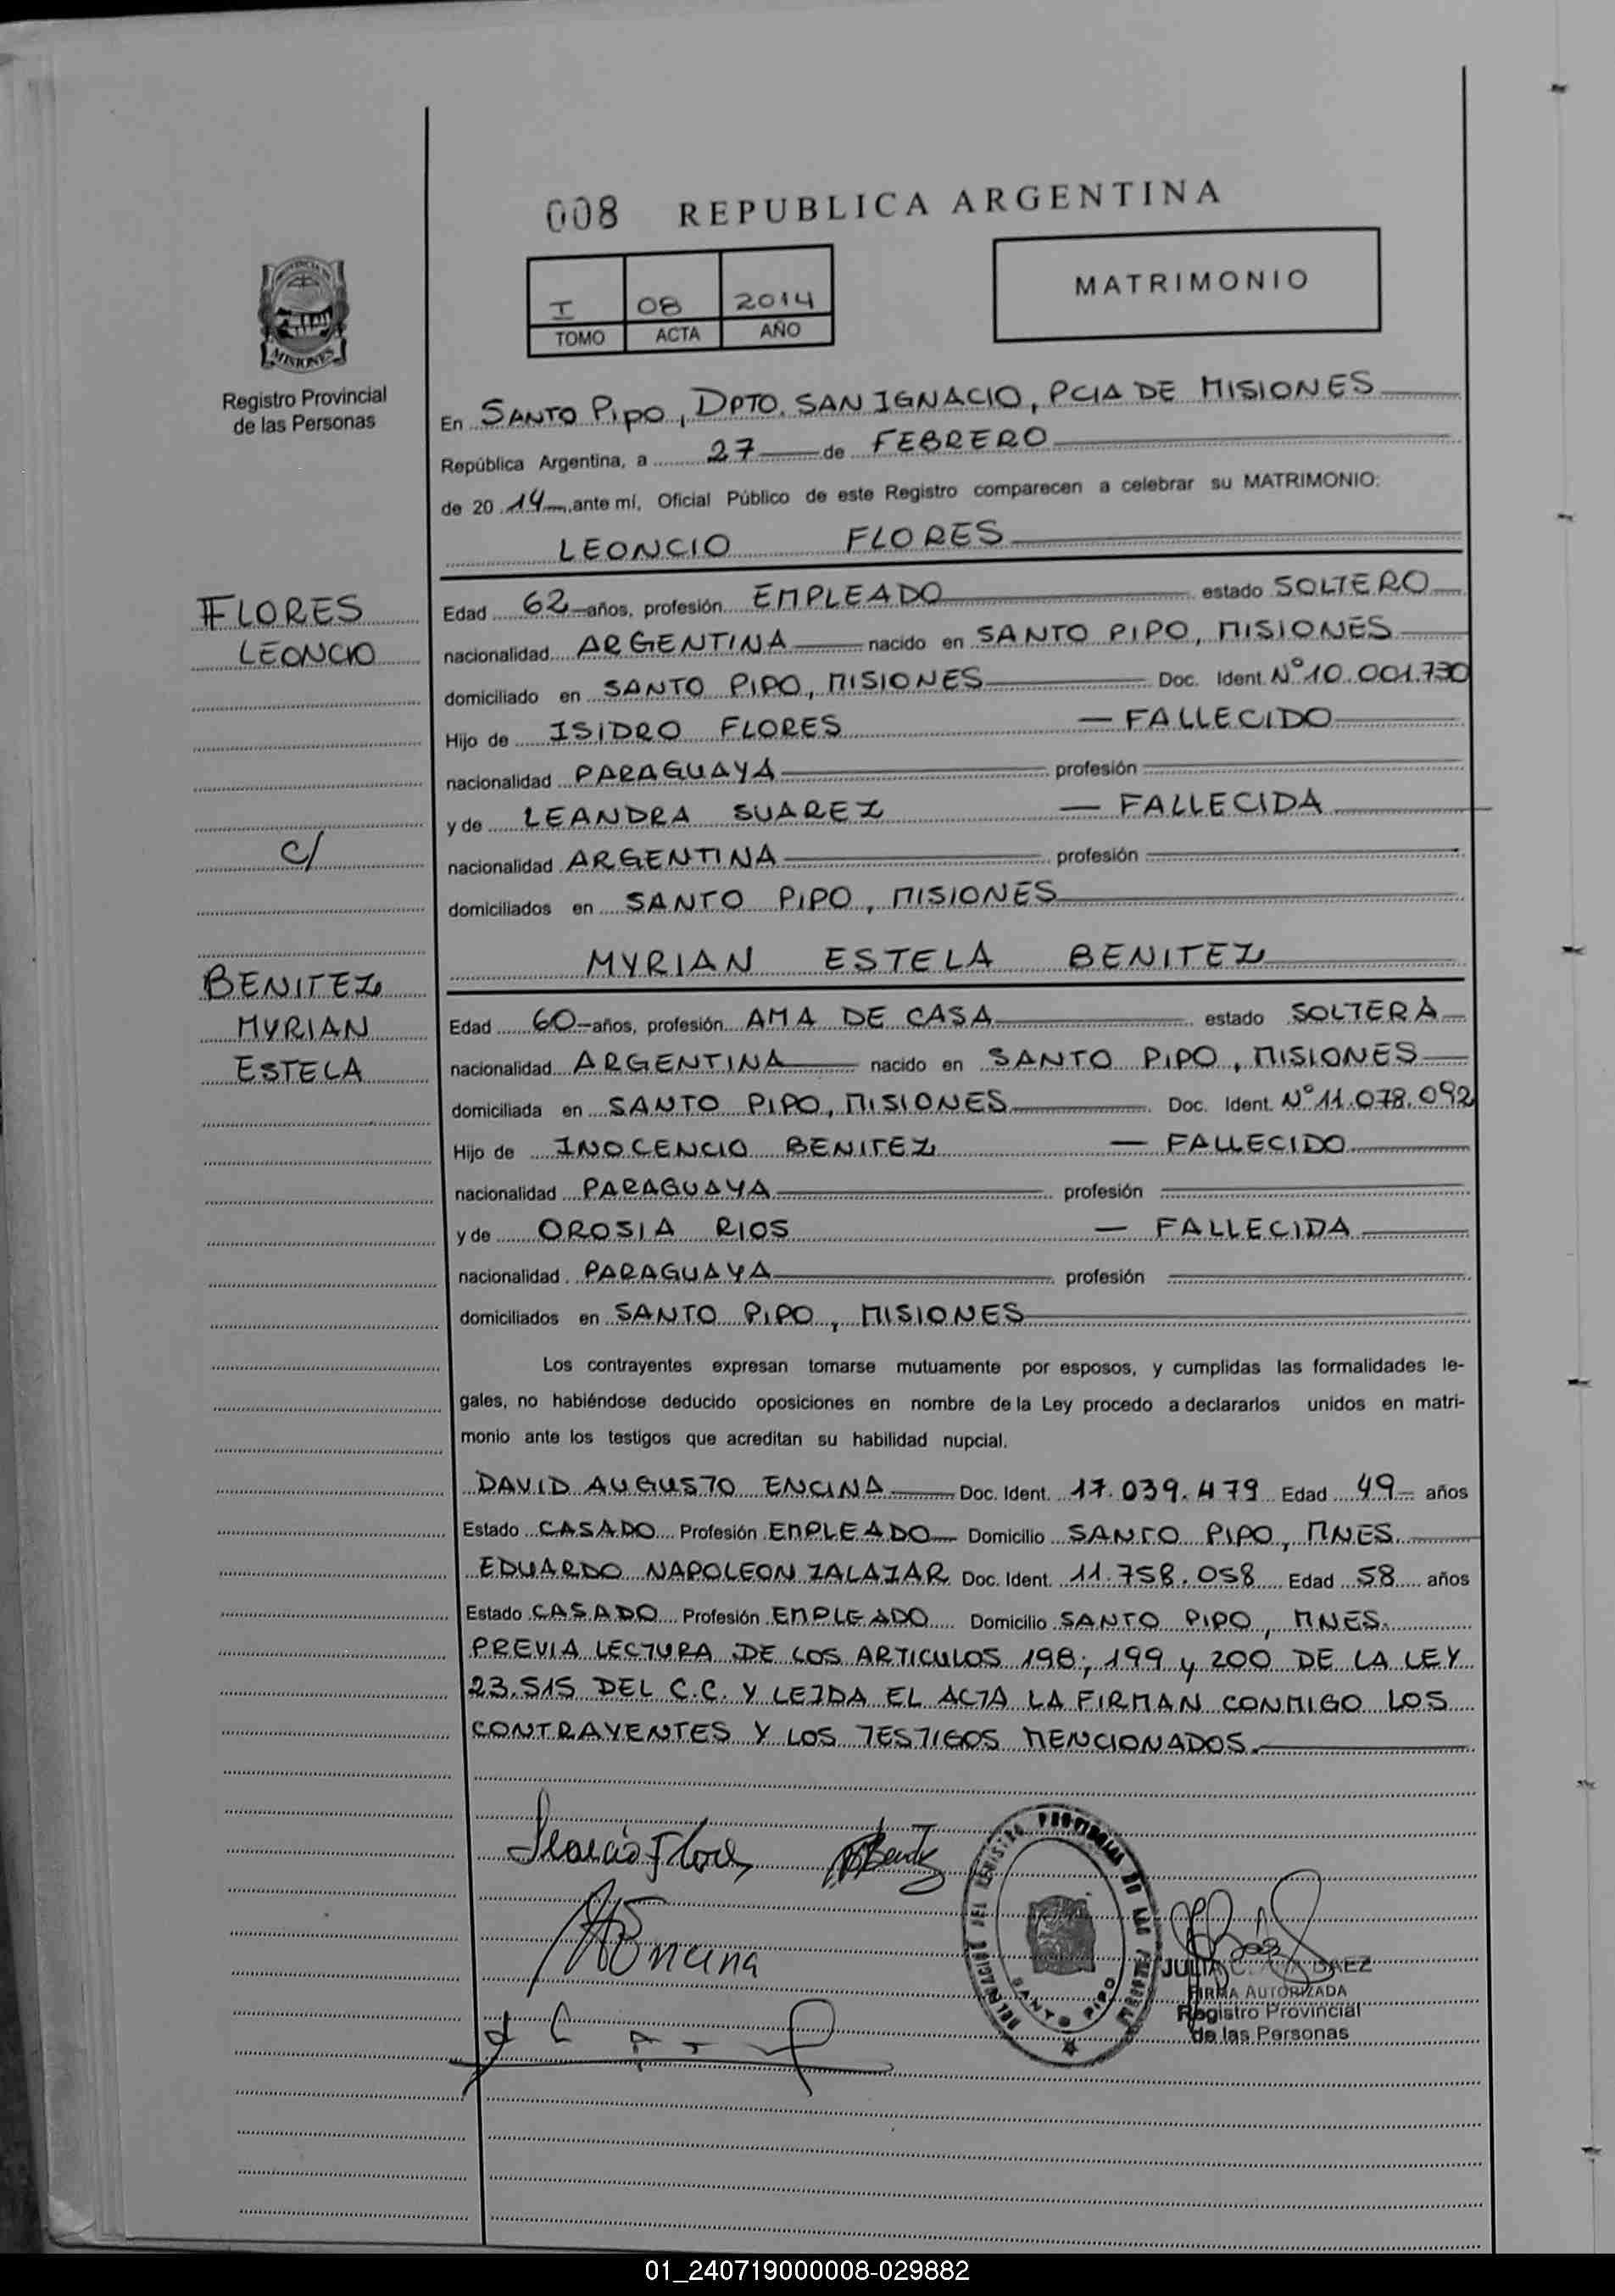 008 REPUBLICA ARGENTINA
I 08 2014
TOMO ACTA AÑO
MATRIMONIO
MISIONES
Registro Provincial
de las Personas
En SANTO PIPO, DPTO. SAN IGNACIO, PCIA DE MISIONES
República Argentina, a 27 de FEBRERO
de 20 14 ante mí, Oficial Público de este Registro comparecen a celebrar su MATRIMONIO:
LEONCIO FLORES
FLORES
LEONCIO
C/
BENITEZ
MYRIAN
ESTELA
Edad 62 años, profesión EMPLEADO estado SOLTERO
nacionalidad ARGENTINA nacido en SANTO PIPO, MISIONES
domiciliado en SANTO PIPO, MISIONES Doc. Ident. N° 10.001.730
Hijo de ISIDRO FLORES — FALLECIDO
nacionalidad PARAGUAYA profesión
y de LEANDRA SUAREZ — FALLECIDA
nacionalidad ARGENTINA profesión
domiciliados en SANTO PIPO, MISIONES
MYRIAN ESTELA BENITEZ
Edad 60 años, profesión AMA DE CASA estado SOLTERA
nacionalidad ARGENTINA nacido en SANTO PIPO, MISIONES
domiciliada en SANTO PIPO, MISIONES Doc. Ident. N° 11.078.092
Hijo de INOCENCIO BENITEZ — FALLECIDO
nacionalidad PARAGUAYA profesión
y de OROSIA RIOS — FALLECIDA
nacionalidad PARAGUAYA profesión
domiciliados en SANTO PIPO, MISIONES
Los contrayentes expresan tomarse mutuamente por esposos, y cumplidas las formalidades le-
gales, no habiéndose deducido oposiciones en nombre de la Ley procedo a declararlos unidos en matri-
monio ante los testigos que acreditan su habilidad nupcial.
DAVID AUGUSTO ENCINA Doc. Ident. 17.039.479 Edad 49 años
Estado CASADO Profesión EMPLEADO Domicilio SANTO PIPO, MNES.
EDUARDO NAPOLEON ZALAZAR Doc. Ident. 11.758.058 Edad 58 años
Estado CASADO Profesión EMPLEADO Domicilio SANTO PIPO, MNES.
PREVIA LECTURA DE LOS ARTICULOS 198; 199 y 200 DE LA LEY
23.515 DEL C.C. Y LEIDA EL ACTA LA FIRMAN CONMIGO LOS
CONTRAYENTES Y LOS TESTIGOS MENCIONADOS.
Leoncio Flores
Encina
DELEGACION DEL REGISTRO PROVINCIAL DE LAS PERSONAS
SANTO PIPO
BAEZ
FIRMA AUTORIZADA
Registro Provincial
de las Personas
01_240719000008-029882